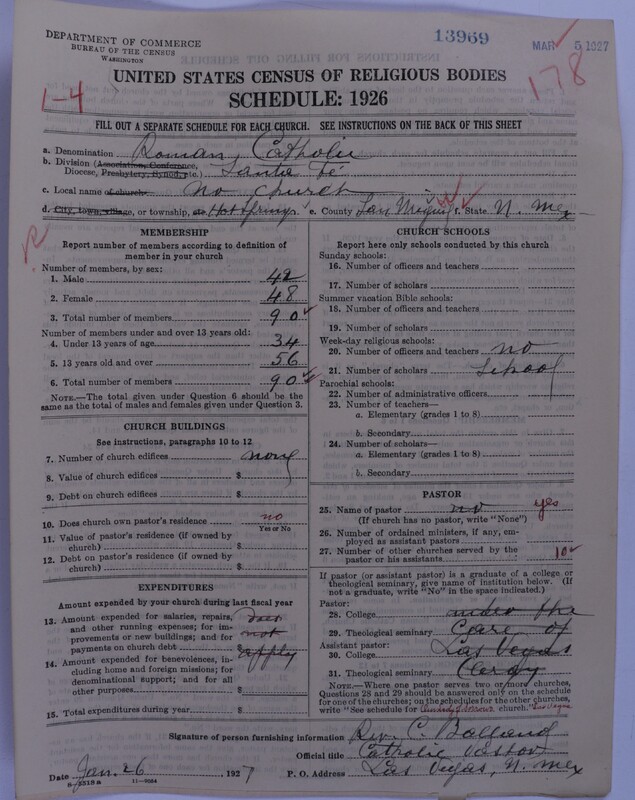 DEPARTMENT OF COMMERCE
BUREAU OF THE CENSUS
WASHINGTON
13969
MAR 5 1927
178
1-4
UNITED STATES CENSUS OF RELIGIOUS BODIES
SCHEDULE: 1926
FILL OUT A SEPARATE SCHEDULE FOR EACH CHURCH. SEE INSTRUCTIONS ON THE BACK OF THIS SHEET
a. Denomination Roman Catholic
b. Division (Association, Conference,
Diocese, Presbytery, Synod, etc.) Santa Fé
c. Local name of church no church
d. City, town, village, or township, etc. Hot Springs e. County San Miguel f. State N. Mex
R
MEMBERSHIP
Report number of members according to definition of
member in your church
Number of members, by sex:
1. Male 42
2. Female 48
3. Total number of members 90
Number of members under and over 13 years old:
4. Under 13 years of age 34
5. 13 years old and over 56
6. Total number of members 90
NOTE.—The total given under Question 6 should be
same as the total of males and females given under Question 3.
CHURCH BUILDINGS
See instructions, paragraphs 10 to 12
7. Number of church edifices none
8. Value of church edifices $
9. Debt on church edifices $
10. Does church own pastor's residence no
Yes or No
11. Value of pastor's residence (if owned by
church) $
12. Debt on pastor's residence (if owned by
church) $
EXPENDITURES
Amount expended by your church during last fiscal year
13. Amount expended for salaries, repairs,
and other running expenses; for im-
provements or new buildings; and for
payments on church debt $ does not apply
14. Amount expended for benevolences, in-
cluding home and foreign missions; for
denominational support; and for all
other purposes $
15. Total expenditures during year $
CHURCH SCHOOLS
Report here only schools conducted by this church
Sunday schools:
16. Number of officers and teachers
17. Number of scholars
Summer vacation Bible schools:
18. Number of officers and teachers
19. Number of scholars
Week-day religious schools:
20. Number of officers and teachers no
21. Number of scholars school
Parochial schools:
22. Number of administrative officers
23. Number of teachers—
a. Elementary (grades 1 to 8)
b. Secondary
24. Number of scholars—
a. Elementary (grades 1 to 8)
b. Secondary
PASTOR
25. Name of pastor no yes
(If church has no pastor, write "None")
26. Number of ordained ministers, if any, em-
ployed as assistant pastors
27. Number of other churches served by the
pastor or his assistants 10
If pastor (or assistant pastor) is a graduate of a college or
theological seminary, give name of institution below. (If
not a graduate, write "No" in the space indicated.)
Pastor:
28. College under the
29. Theological seminary Care of
Assistant pastor:
30. College Las Vegas
31. Theological seminary Clergy
NOTE.—Where one pastor serves two or more churches,
Questions 28 and 29 should be answered only on the schedule
for one of the churches; on the schedules for the other churches,
write "See schedule for Sorrows church." Las Vegas
Signature of person furnishing information Rev. C. Balland
Official title Catholic Pastor
Date Jan. 26, 1927 P. O. Address Las Vegas, N. Mex
11—9084